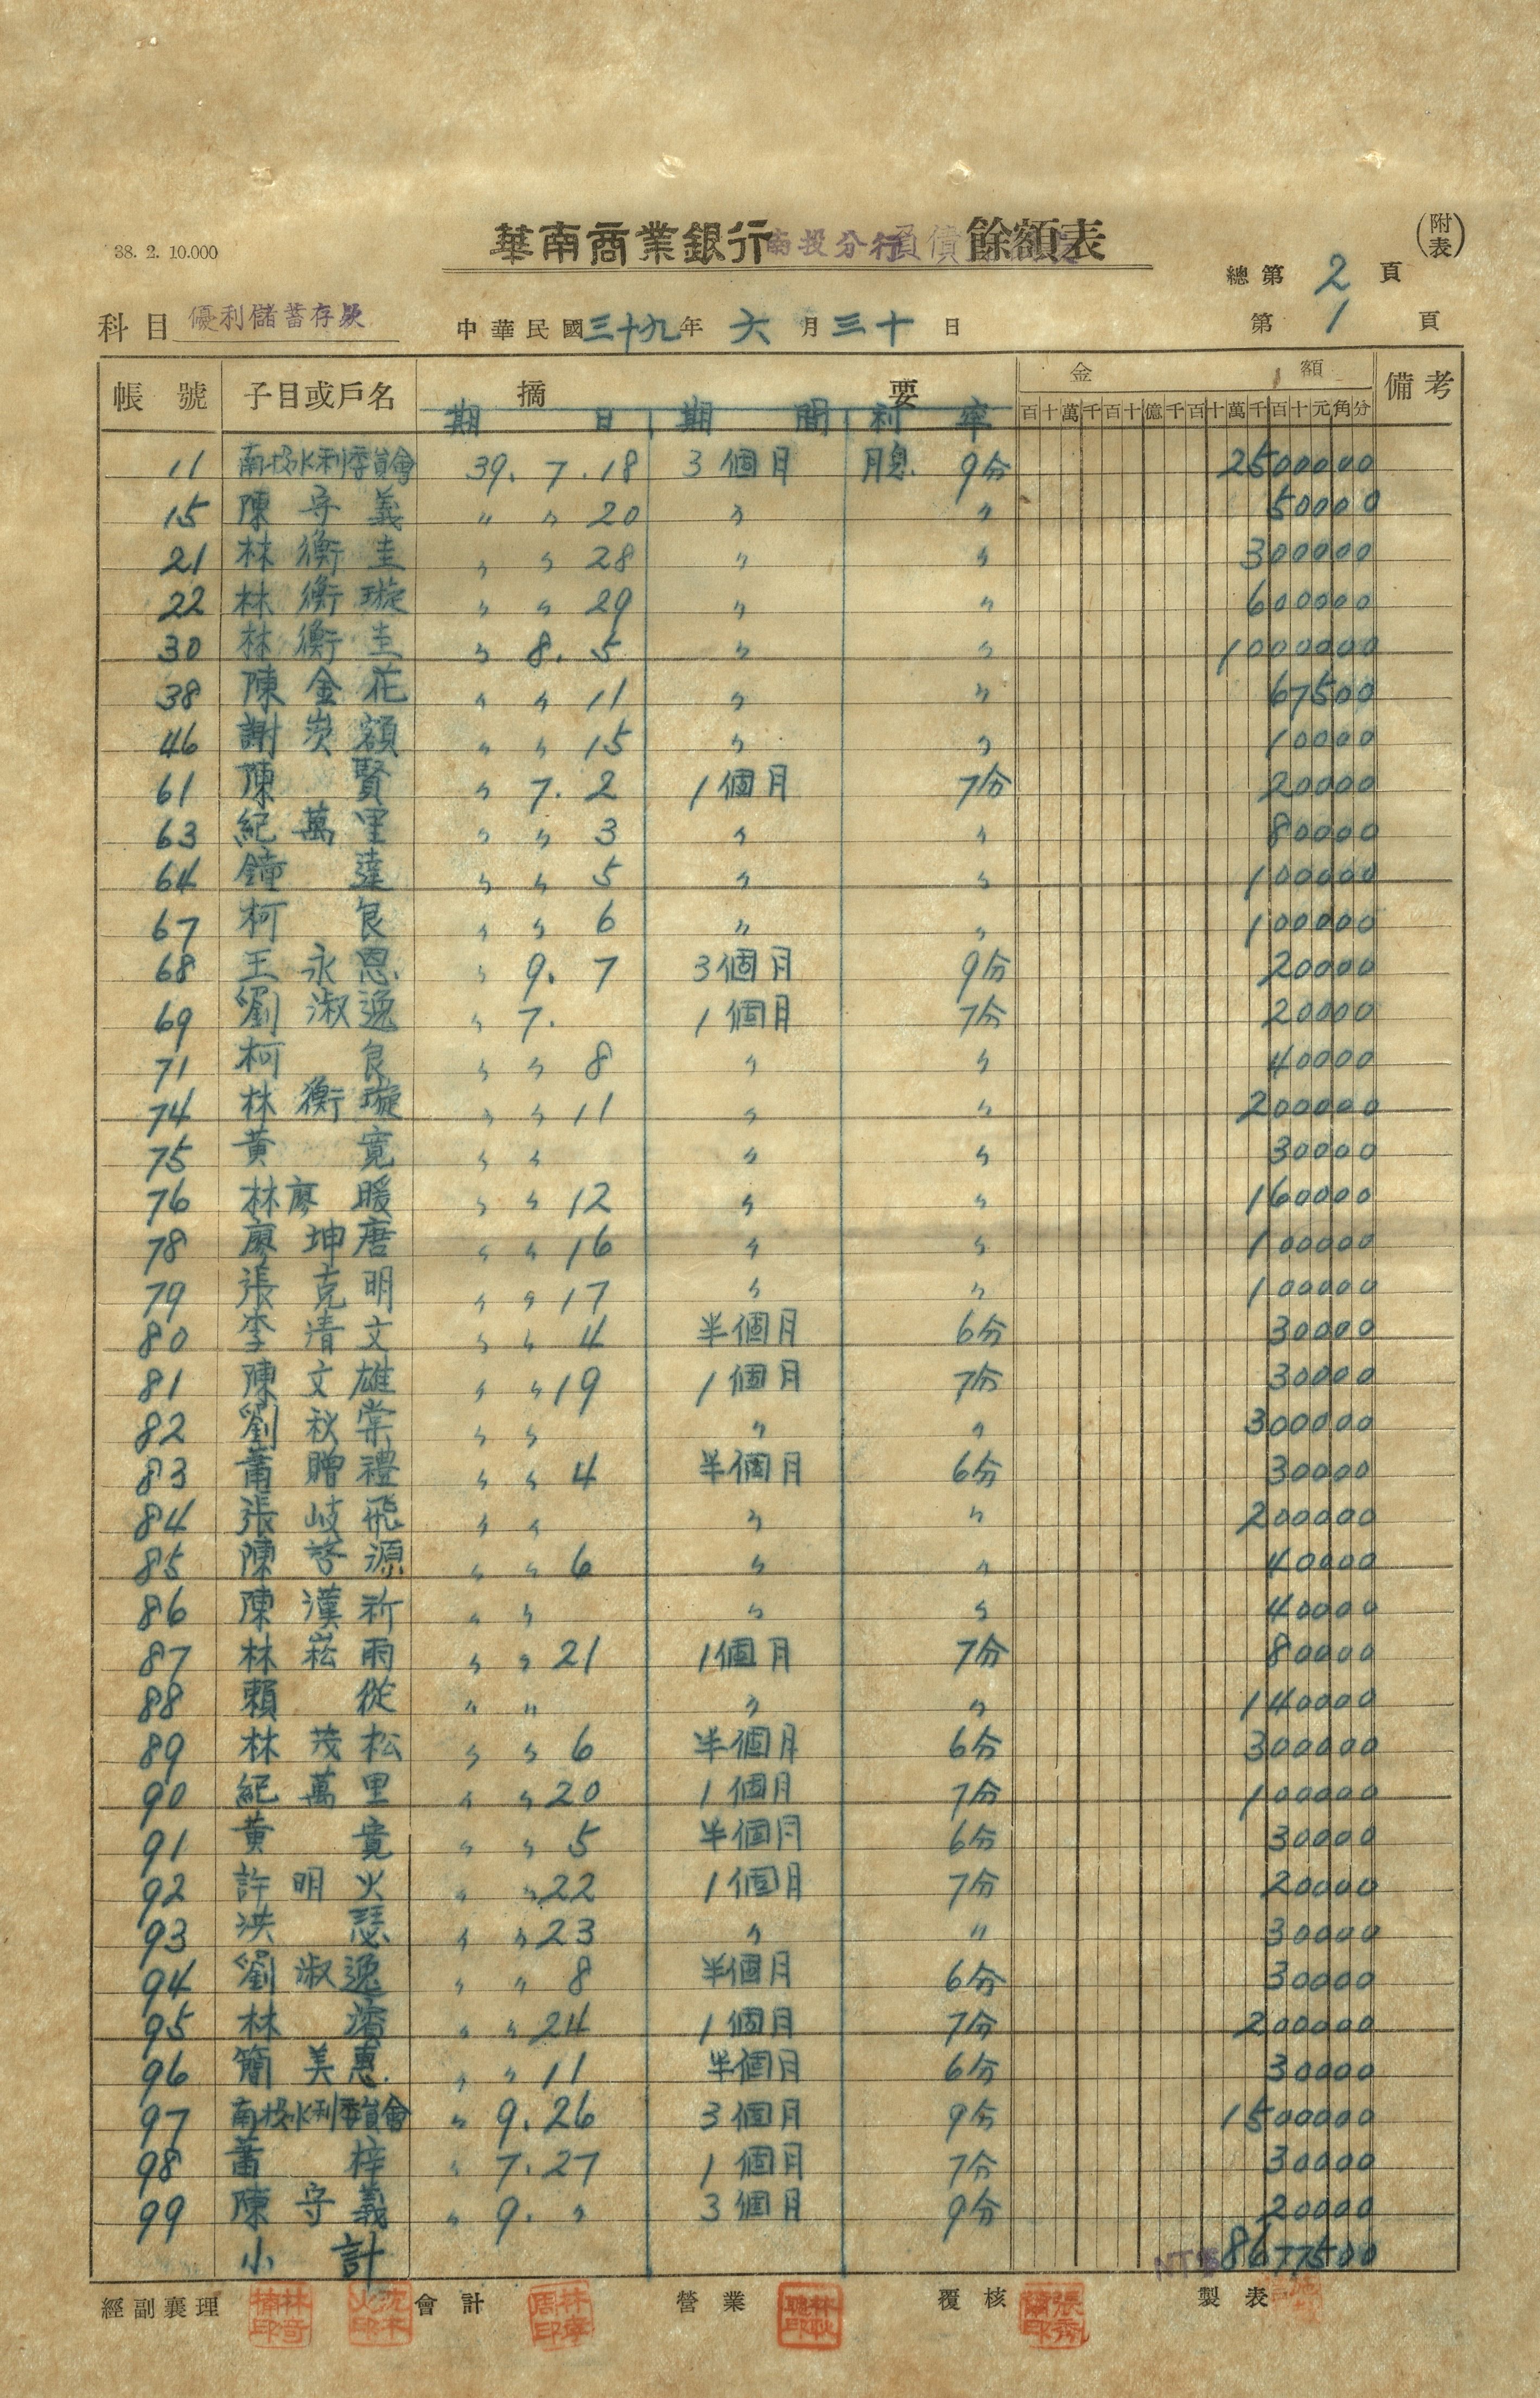 38. 2. 10.000
華南商業銀行南投分行負債餘額表
(附表)
總第 2 頁
科目 優利儲蓄存款 中華民國三十九年六月三十日 第 1 頁
帳號 子目或戶名 摘要 金額 備考
期日 期間 利率 百十萬千百十億千百十萬千百十元角分
11 南投水利委員會 39. 7. 18 3個月 月息 9分 2500000
15 陳守義 〃 〃 20 〃 〃 50000
21 林衡圭 〃 〃 28 〃 〃 300000
22 林衡璇 〃 〃 29 〃 〃 600000
30 林衡圭 〃 8. 5 〃 〃 1000000
38 陳金花 〃 〃 11 〃 〃 67500
46 謝炭額 〃 〃 15 〃 〃 10000
61 陳賢 〃 7. 2 1個月 7分 20000
63 紀萬里 〃 〃 3 〃 〃 80000
64 鐘達 〃 〃 5 〃 〃 100000
67 柯良 〃 〃 6 〃 〃 100000
68 王永恩 〃 9. 7 3個月 9分 20000
69 劉淑逸 〃 7. 1個月 7分 20000
71 柯良 〃 〃 8 〃 〃 40000
74 林衡璇 〃 〃 11 〃 〃 200000
75 黃寬 〃 〃 〃 〃 30000
76 林廖暖 〃 〃 12 〃 〃 160000
78 廖坤唐 〃 〃 16 〃 〃 100000
79 張克明 〃 〃 17 〃 〃 100000
80 李清文 〃 〃 4 半個月 6分 30000
81 陳文雄 〃 〃 19 1個月 7分 30000
82 劉秋棠 〃 〃 〃 〃 300000
83 蕭贈禮 〃 〃 4 半個月 6分 30000
84 張岐飛 〃 〃 〃 〃 200000
85 陳啓源 〃 〃 6 〃 〃 40000
86 陳漢祈 〃 〃 〃 〃 40000
87 林崧雨 〃 〃 21 1個月 7分 80000
88 賴從 〃 〃 〃 〃 140000
89 林茂松 〃 〃 6 半個月 6分 300000
90 紀萬里 〃 〃 20 1個月 7分 100000
91 黃寬 〃 〃 5 半個月 6分 30000
92 許明火 〃 〃 22 1個月 7分 20000
93 洪瑟 〃 〃 23 〃 〃 30000
94 劉淑逸 〃 〃 8 半個月 6分 30000
95 林濱 〃 〃 24 1個月 7分 200000
96 簡美惠 〃 〃 11 半個月 6分 30000
97 南投水利委員會 〃 9. 26 3個月 9分 1500000
98 蕭梓 〃 7. 27 1個月 7分 30000
99 陳守義 〃 9. 〃 3個月 9分 20000
小計 NT$ 8677500
經副襄理 會計 營業 覆核 製表